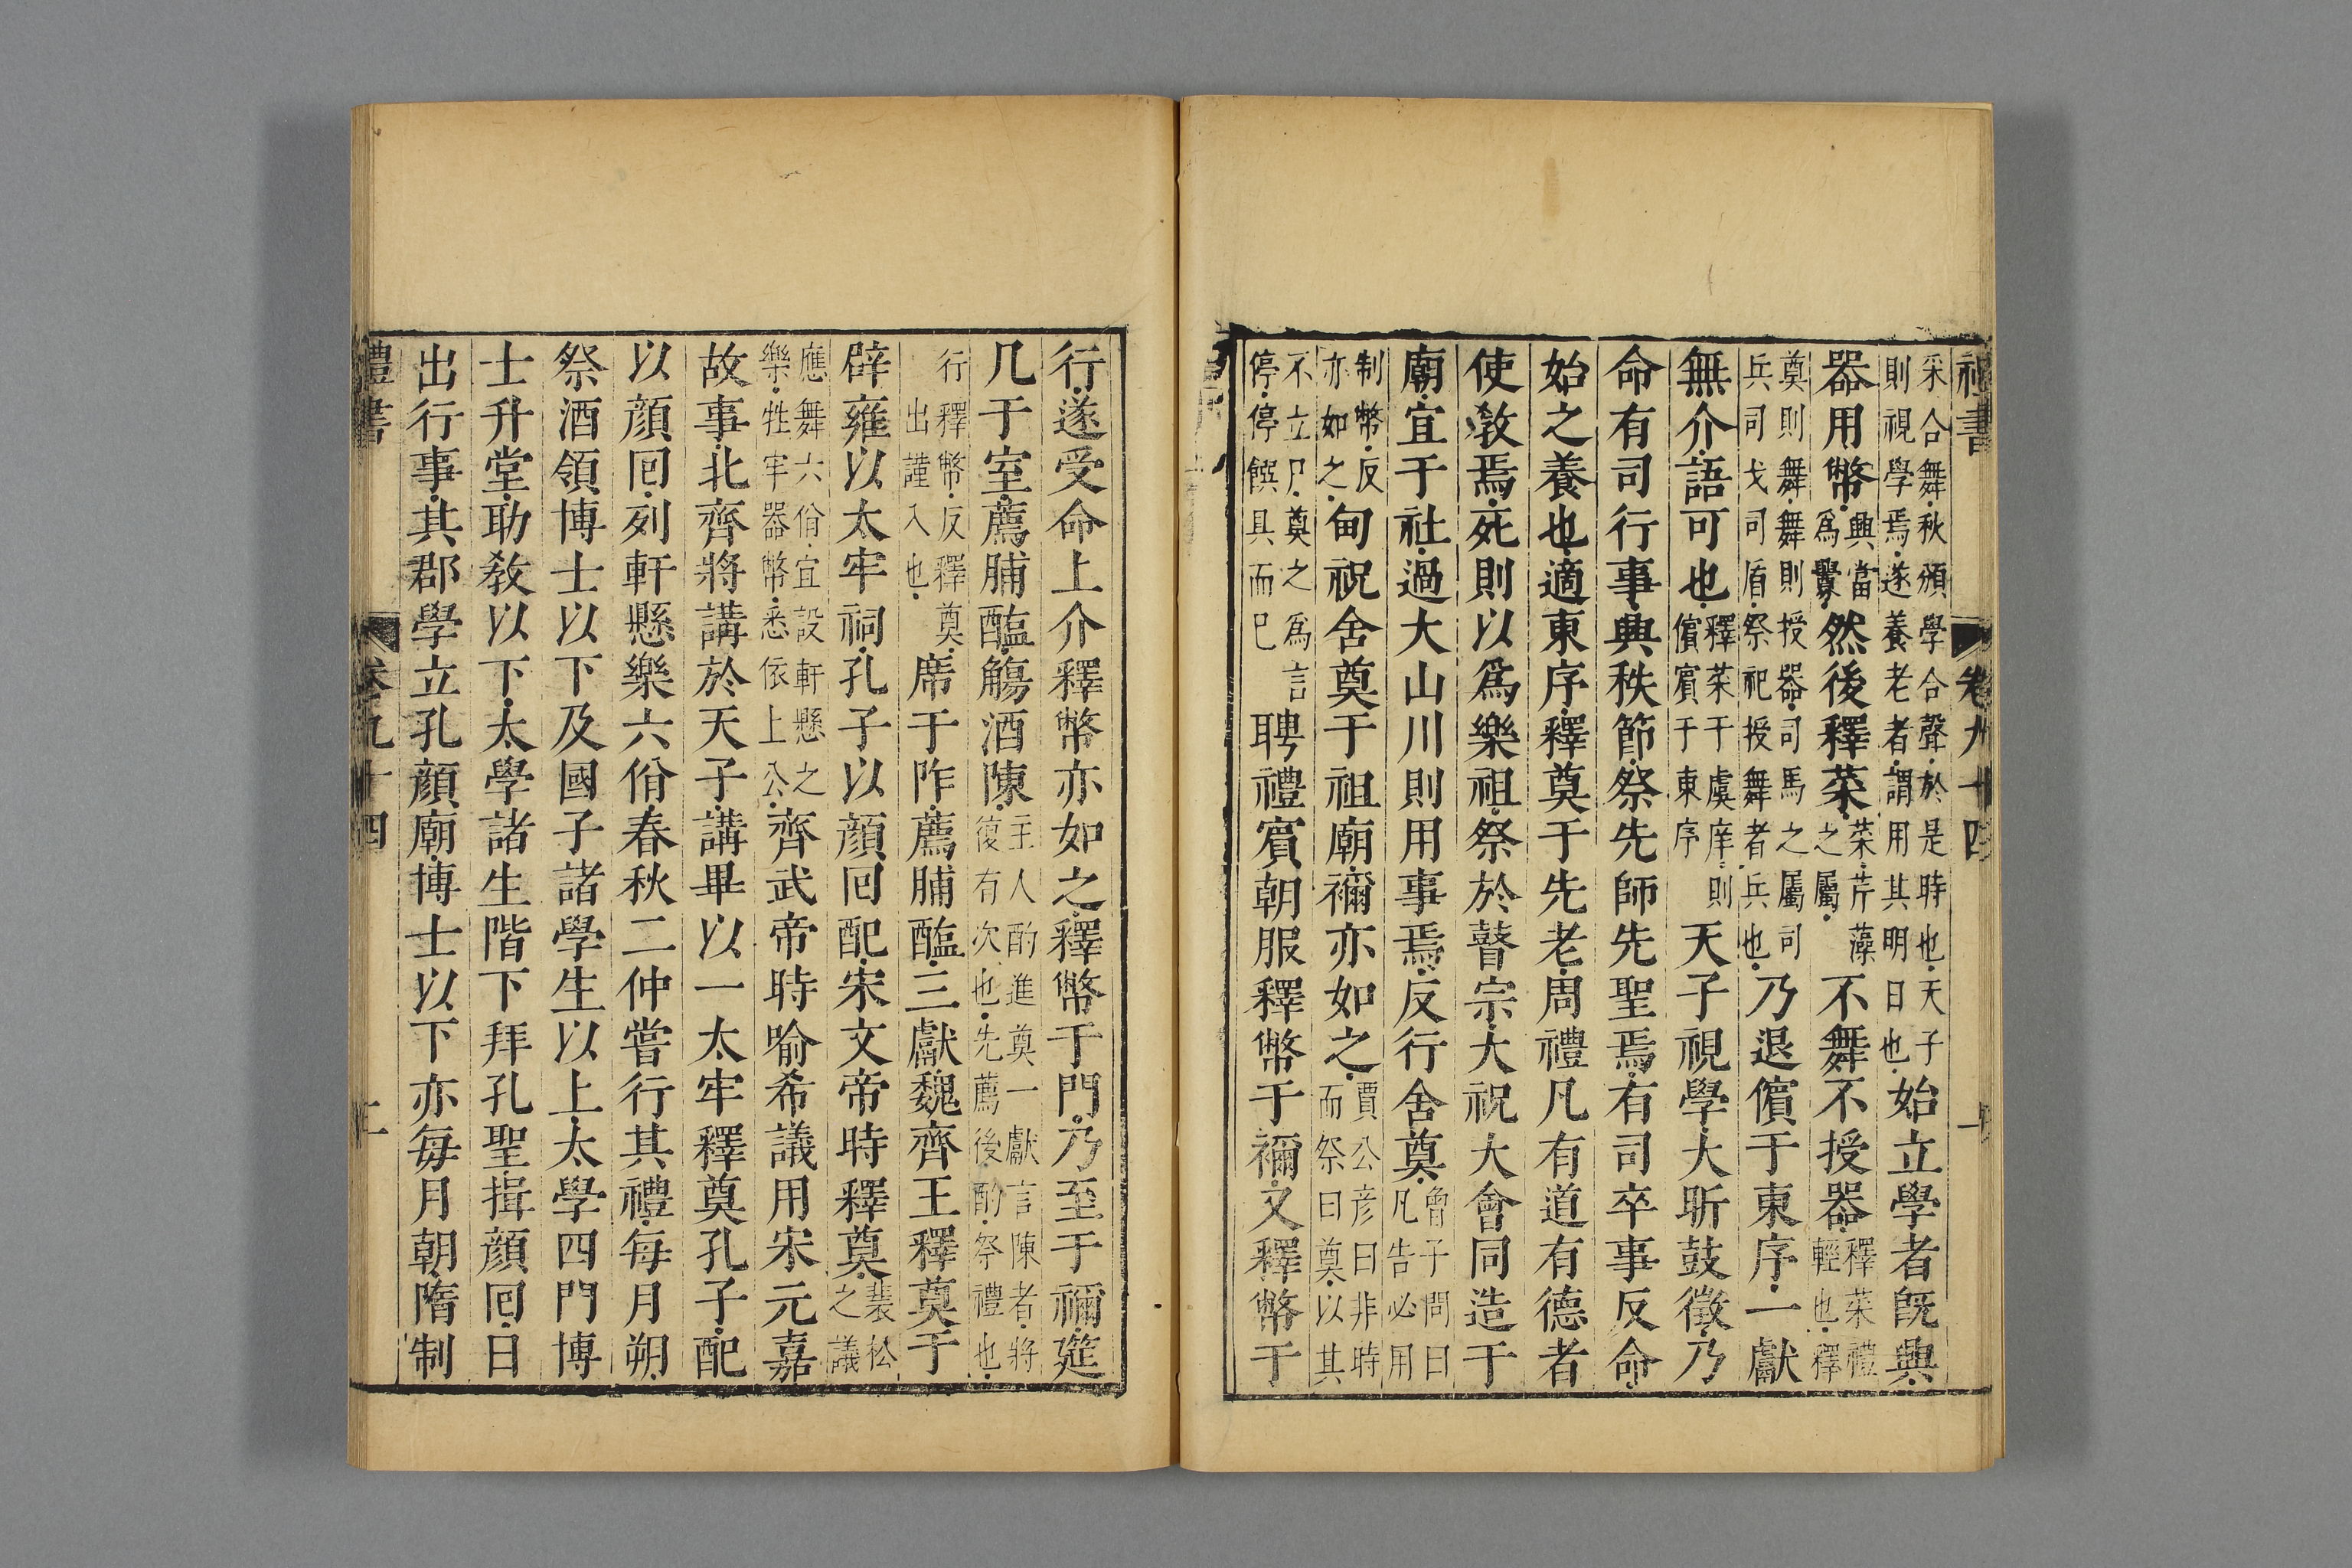 禮書 卷九十四
采合舞秋頒學合聲於是時也天子
則視學焉遂養老者謂用其明日也始立學者既興
器用幣興當
爲釁然後釋菜菜芹藻
之屬不舞不授器釋菜禮
輕也釋
奠則舞舞則授器司馬之屬司
兵司戈司盾祭祀授舞者兵也乃退儐于東序一獻
無介語可也釋菜于虞庠則
儐賓于東序天子視學大昕鼓徵乃
命有司行事興秩節祭先師先聖焉有司卒事反命
始之養也適東序釋奠于先老周禮凡有道有德者
使敎焉死則以爲樂祖祭於瞽宗大祝大會同造于
廟宜于社過大山川則用事焉反行舍奠曾子問曰
凡告必用
制幣反
亦如之甸祝舍奠于祖廟禰亦如之賈公彦曰非時
而祭曰奠以其
不立尸奠之爲言
停停饌具而已聘禮賓朝服釋幣于禰又釋幣于
行遂受命上介釋幣亦如之釋幣于門乃至于禰筵
几于室薦脯醢觴酒陳主人酌進奠一獻言陳者將
復有次也先薦後酌祭禮也
行釋幣反釋奠
出謹入也席于阼薦脯醢三獻魏齊王釋奠于
辟雍以太牢祠孔子以顔囘配宋文帝時釋奠裴松
之議
應舞六佾宜設軒懸之
樂牲牢器幣悉依上公齊武帝時喻希議用宋元嘉
故事北齊將講於天子講畢以一太牢釋奠孔子配
以顔囘列軒懸樂六佾春秋二仲嘗行其禮每月朔
祭酒領博士以下及國子諸學生以上太學四門博
士升堂助敎以下太學諸生階下拜孔聖揖顔囘日
出行事其郡學立孔顔廟博士以下亦每月朝隋制
禮書 卷九十四